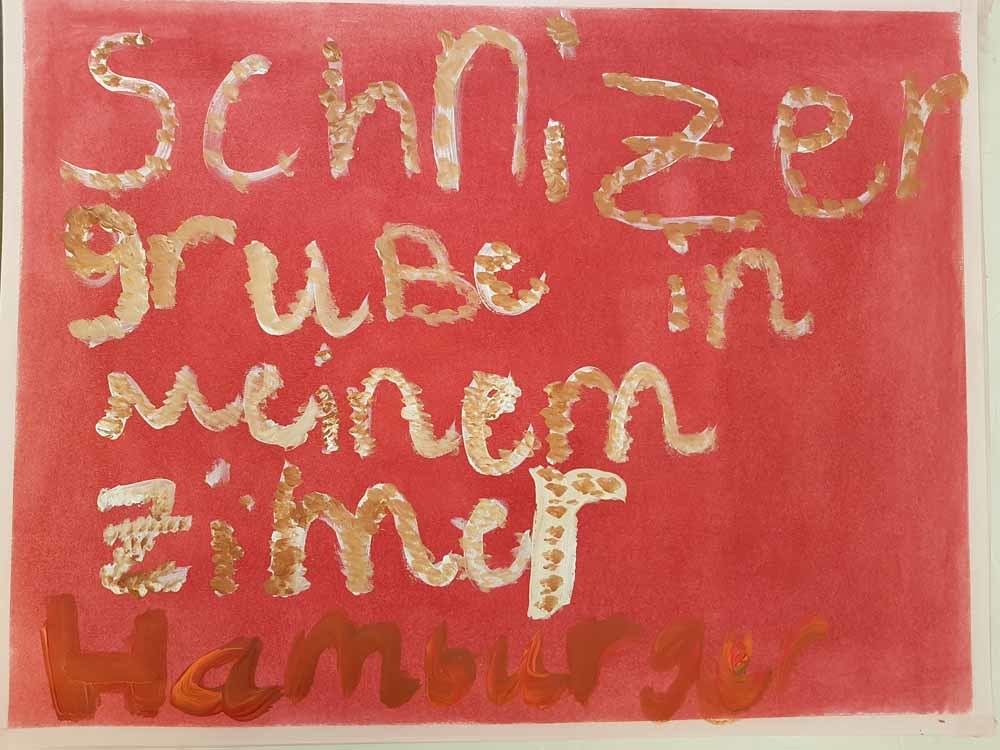 Schnizer
gruBe in
meinem
Zimer
Hamburger